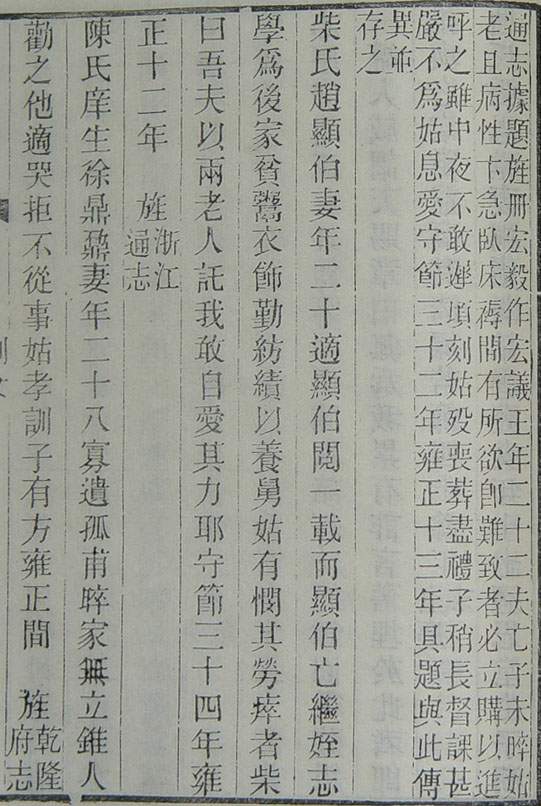 通志據題旌冊宏毅作宏議王年二十二夫亡子未晬姑
老且病性卞急臥床褥間有所欲卽難致者必立購以進
呼之雖中夜不敢遲頃刻姑歿喪葬盡禮子稍長督課甚
嚴不爲姑息愛守節三十二年雍正十三年具題與此傳
異並
存之
柴氏趙顯伯妻年二十適顯伯閱一載而顯伯亡繼姪志
學爲後家貧鬻衣飾勤紡績以養舅姑有憫其勞瘁者柴
曰吾夫以兩老人託我敢自愛其力耶守節三十四年雍
正十二年 旌浙江
通志
陳氏庠生徐鼎鼐妻年二十八寡遺孤甫晬家無立錐人
勸之他適哭拒不從事姑孝訓子有方雍正間 旌乾隆
府志